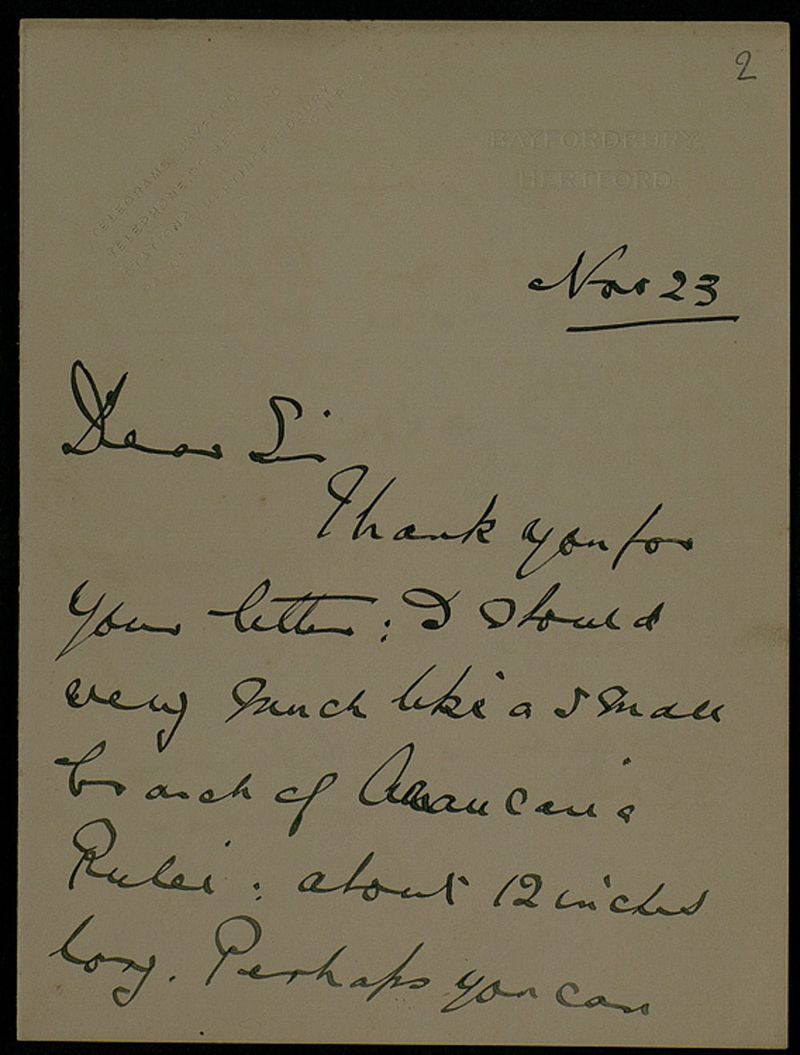 2
TELEGRAMS, BAYFORD
TELEPHONE
STATION, HERTINGFORDBURY
BAYFORDBURY,
HERTFORD.
Nov 23
Dear Sir
Thank you for
your letter: I should
very much like a small
branch of Araucaria
Rulei: about 12 inches
long. Perhaps you can